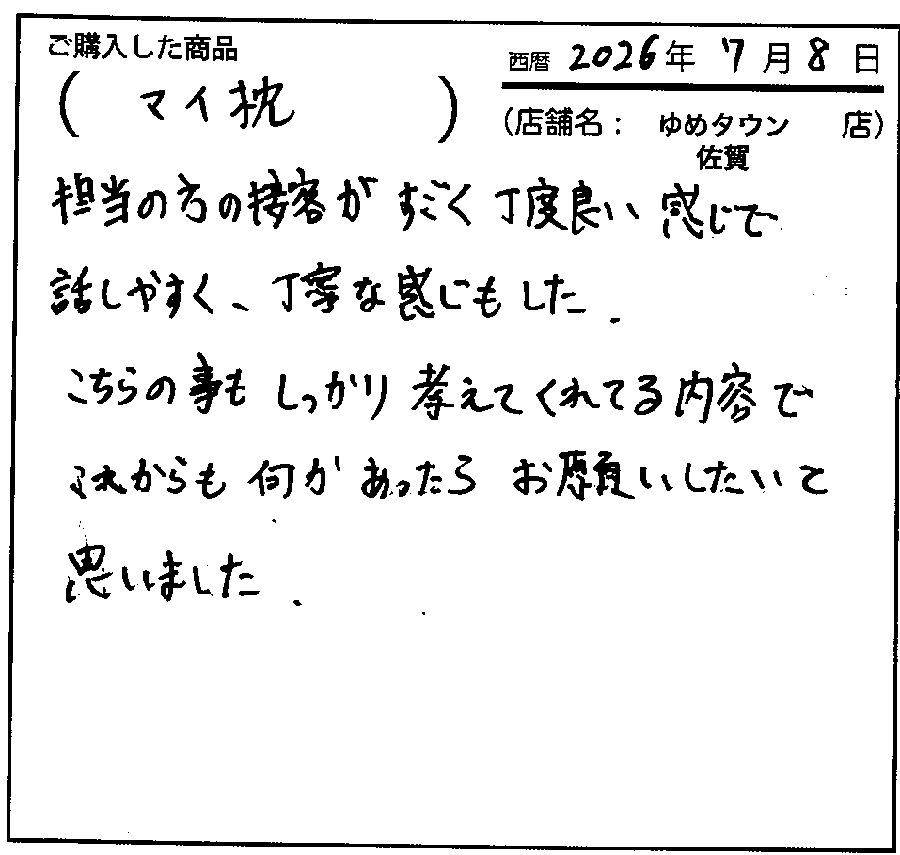 ご購入した商品
西暦 2026年 7月 8日
( マイ枕 )
(店舗名： ゆめタウン 店)
佐賀
担当の方の接客がすごく丁度良い感じで
話しやすく、丁寧な感じもした.
こちらの事もしっかり考えてくれてる内容で
これからも何かあったらお願いしたいと
思いました.